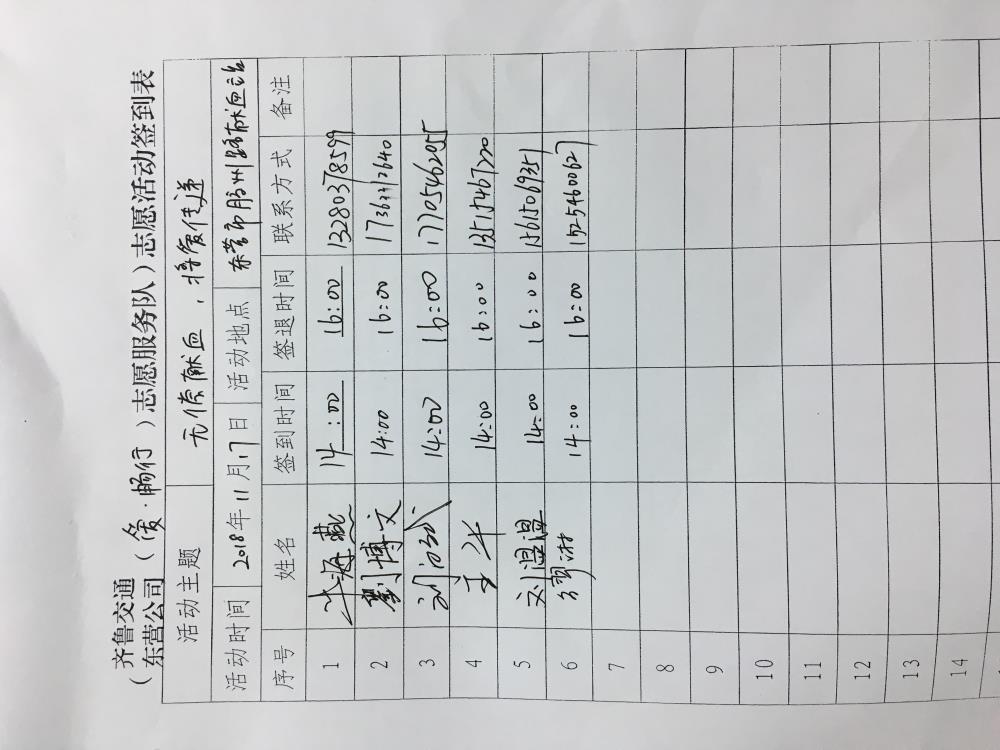 齐鲁交通
（东营公司（爱·畅行）志愿服务队）志愿活动签到表
活动主题 无偿献血，将爱传递
活动时间 2018年11月17日 活动地点 东营市胶州路献血站
序号 姓名 签到时间 签退时间 联系方式 备注
1 海燕 14:00 16:00 13280378599
2 劉博文 14:00 16:00
3 14:00 16:00 17705462055
4 14:00 16:00 13515467220
5 刘温温 14:00 16:00 15615069351
6 14:00 16:00 15254600627
7
8
9
10
11
12
13
14